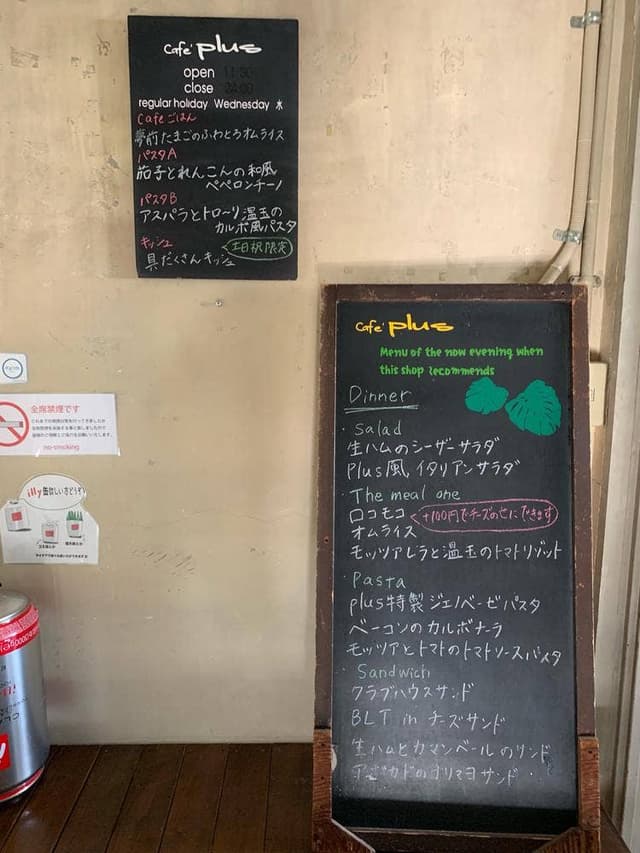 Cafe' plus
open 11:30
close
regular holiday Wednesday 水
Cafeごはん
夢前たまごのふわとろオムライス
パスタA
茄子とれんこんの和風
ペペロンチーノ
パスタB
アスパラとトロ〜リ温玉の
カルボ風パスタ
キッシュ 土日祝限定
具だくさんキッシュ
Cafe' plus
Menu of the now evening when
this shop recommends
Dinner
・Salad
生ハムのシーザーサラダ
Plus風イタリアンサラダ
・The meal one
ロコモコ +100円でチーズのせにできます
オムライス
モッツアレラと温玉のトマトリゾット
・Pasta
plus特製ジェノベーゼパスタ
ベーコンのカルボナーラ
モッツアとトマトのトマトソースパスタ
・Sandwich
クラブハウスサンド
BLT in チーズサンド
生ハムとカマンベールのサンド
アボカドのゴリマヨサンド
全席禁煙です
no-smoking
illy缶欲しい方どうぞ